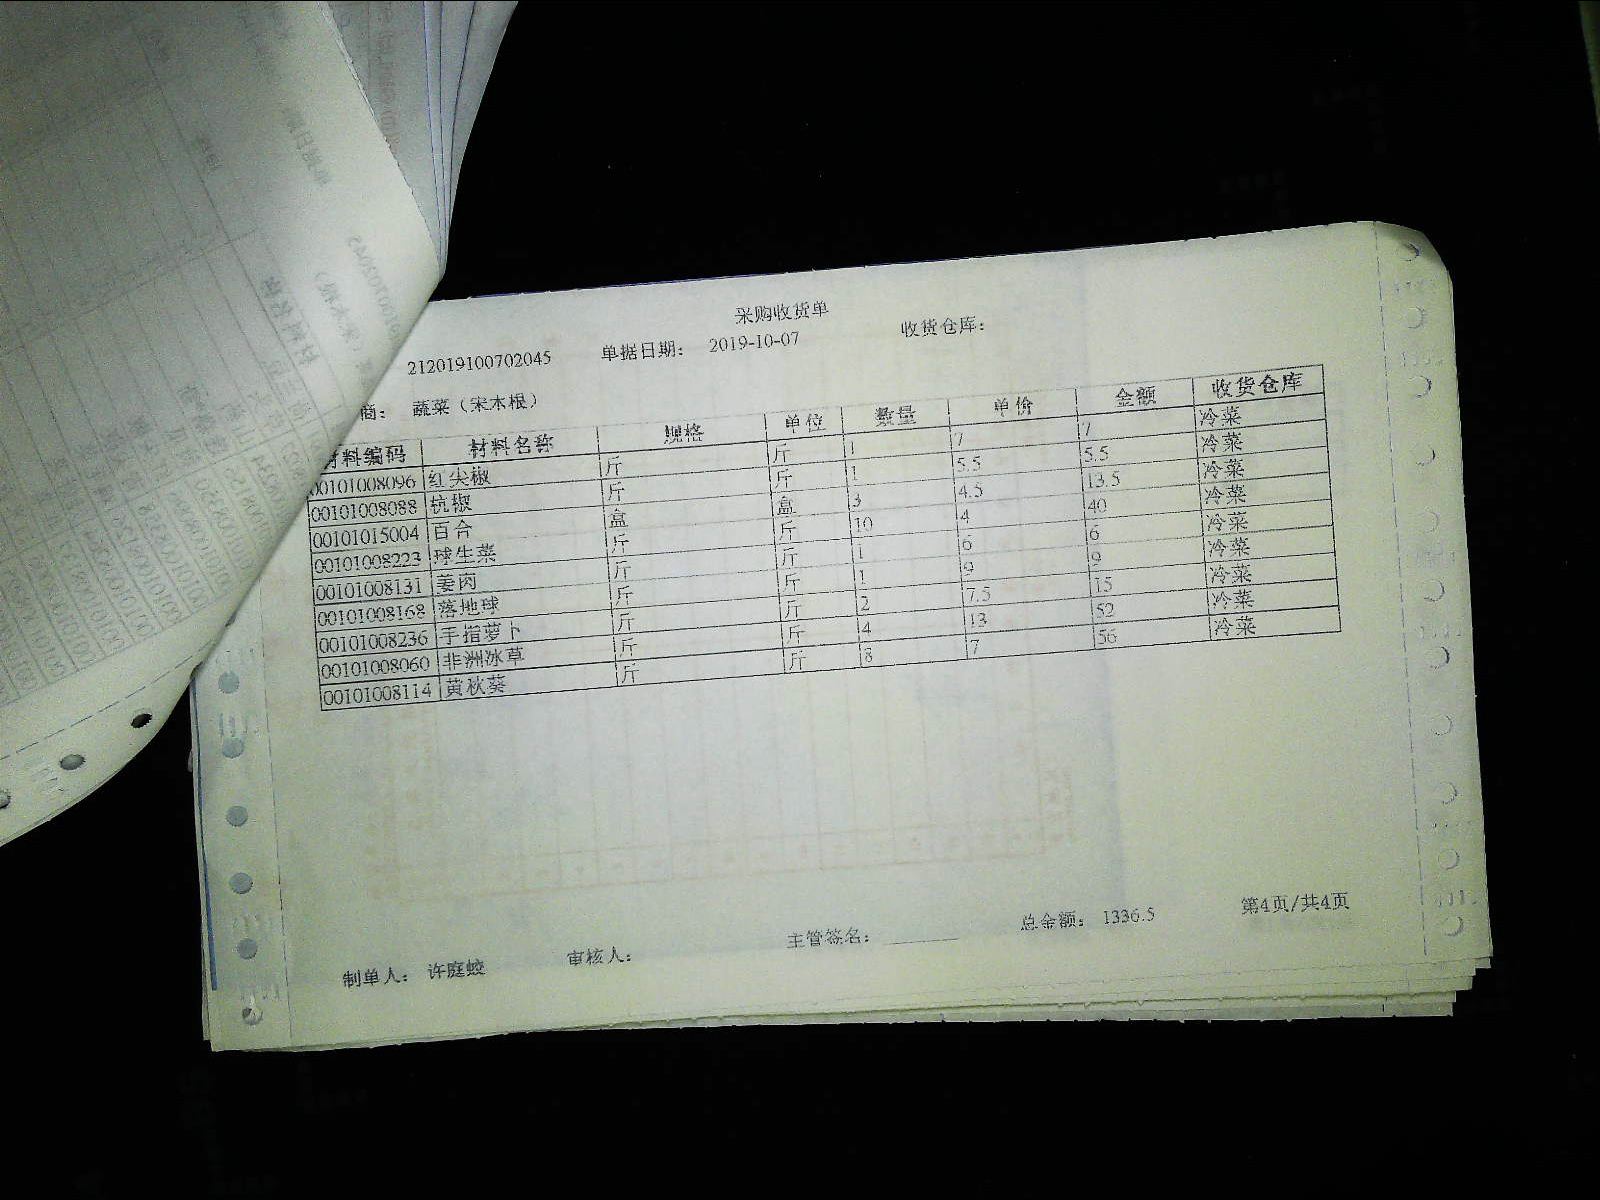 采购收货单
212019100702045 单据日期: 2019-10-07 收货仓库:
商: 蔬菜（宋木根）
材料编码 材料名称 规格 单位 数量 单价 金额 收货仓库
00101008096 红尖椒 斤 斤 1 7 7 冷菜
00101008088 杭椒 斤 斤 1 5.5 5.5 冷菜
00101015004 百合 盒 盒 3 4.5 13.5 冷菜
00101008223 球生菜 斤 斤 10 4 40 冷菜
00101008131 姜肉 斤 斤 1 6 6 冷菜
00101008168 落地球 斤 斤 1 9 9 冷菜
00101008236 手指萝卜 斤 斤 2 7.5 15 冷菜
00101008060 非洲冰草 斤 斤 4 13 52 冷菜
00101008114 黄秋葵 斤 斤 8 7 56 冷菜
制单人: 许庭蛟 审核人: 主管签名: 总金额: 1336.5 第4页/共4页